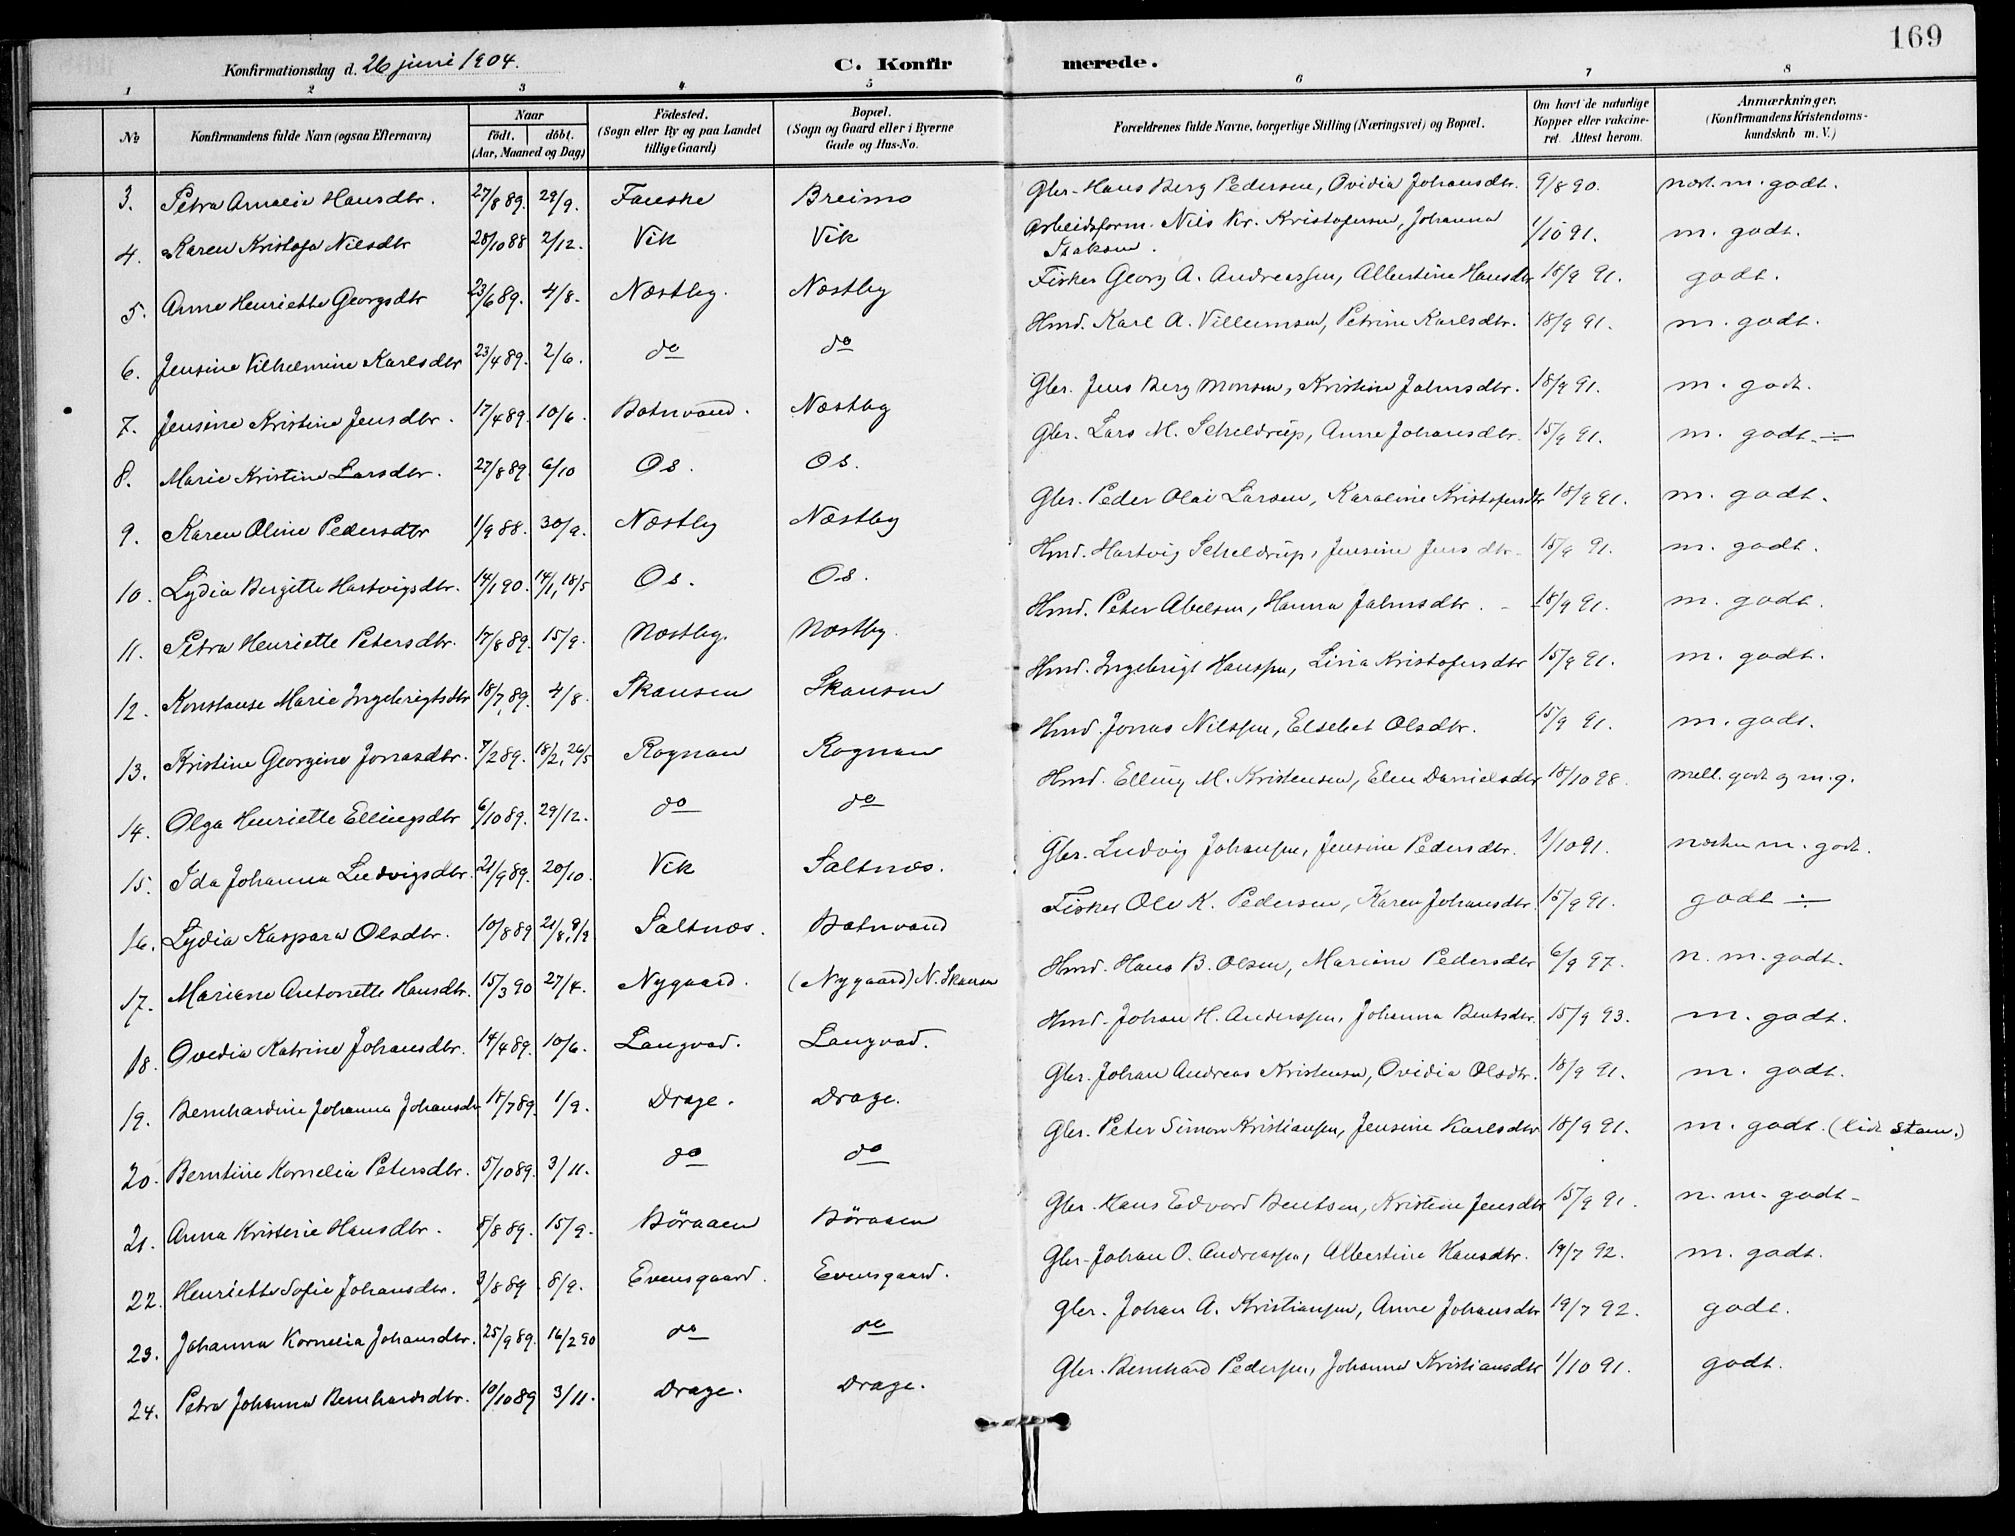 169
Konfirmationsdag d. 26 juni 1904. C. Konfirmerede.
1 2 3 4 5 6 7 8
No. Konfirmandens fulde Navn (ogsaa Efternavn) Naar født. døbt. (Aar, Maaned og Dag) Födested. (Sogn eller By og paa Landet tillige Gaard) Bopæl. (Sogn og Gaard eller i Byerne Gade og Hus-No. Forældrenes fulde Navne, borgerlige Stilling (Næringsvei) og Bopæl. Om havt de naturlige Kopper eller vakcineret. Attest herom. Anmærkninger. (Konfirmandens Kristendomskundskab m. V.)
3. Petra Amalia Hansdtr. 27/8 89. 29/9. Fauske Breimo Gbr. Hans Berg Pedersen, Ovidia Johansdtr. 9/8 90. næst. m. godt.
4. Karen Kristofa Nilsdtr 28/10 88 2/12. Vik Vik Arbeidsform. Nils Kr. Kristofersen, Johanna Isaksen. 1/10 91. m. godt.
5. Anne Henriette Georgsdtr 23/6 89. 4/8. Næstby. Næstby Fisker Georg A. Andreassen, Albertine Hansdtr 18/9 91. godt.
6. Jensine Vilhelmine Karlsdtr 23/4 89. 2/6. do do Hmd. Karl A. Villumsen, Petrine Karlsdtr. 18/9 91. m. godt.
7. Jensine Kristine Jensdtr. 17/4 89. 10/6. Botnvand. Næstby Gbr. Jens Berg Monsen, Kristine Johnsdtr. 18/9 91. m. godt.
8. Marie Kristine Larsdtr. 27/8 89. 6/10 Os. Os. Gbr. Lars M. Scheldrup, Anne Johansdtr. 15/9 91. m. godt. ÷
9. Karen Oline Pedersdtr 1/9 88. 30/9. Næstby Næstby Gbr. Peder Olai Larsen, Karoline Kristofersdtr 18/9 91. m. godt.
10. Lydia Bergitte Hartvigsdtr. 14/1 90. 14/1, 18/5 Os. Os. Hmd. Hartvig Scheldrup, Jensine Jensdtr. 15/9 91. m. godt.
11. Petra Henriette Petersdtr. 17/8 89. 15/9. Næstby. Næstby. Hmd. Peter Abelsen, Hanna Johnsdtr. - 18/9 91. m. godt.
12. Konstanse Marie Ingebrigtsdtr 18/7 89. 4/8. Skansen Skansen Hmd. Ingebrigt Hanssen, Lina Kristofersdtr 15/9 91. m. godt.
13. Kristine Georgine Jonasdtr. 7/2 89. 18/2, 26/5 Rognan Rognan Hmd. Jonas Nilssen, Elsebet Olsdtr. 15/9 91. m. godt.
14. Olga Henriette Ellingsdtr 6/10 89. 29/12. do do Hmd. Elling M. Kristensen, Elen Danielsdtr 18/10 98. mell. godt og m. g.
15. Ida Johanna Ludvigsdtr. 21/9 89. 20/10. Vik Saltnæs. Gbr. Ludvig Johansen, Jensine Pedersdtr. 1/10 91. næsten m. godt.
16. Lydia Kaspara Olsdtr. 10/8 89 21/8, 9/9 Saltnæs. Botnvand Fisker Ole K. Pedersen, Karen Johansdtr. 15/9 91. godt ÷
17. Mariane Antonette Hansdtr. 15/3 90 27/4. Nygaard. (Nygaard) N. Skansen Hmd. Hans B. Olsen, Mariane Pedersdtr 6/9 97. n. m. godt.
18. Ovedia Katrine Johansdtr. 14/4 89. 10/6. Langvad. Langvad. Hmd. Johan H. Anderssen, Johanna Bentsdtr. 15/9 93. m. godt.
19. Bernhardine Johanna Johansdtr 18/7 89. 1/9. Drage. Drage. Gbr. Johan Andreas Kristensen, Ovidia Olsdtr. 18/9 91. m. godt.
20. Berntine Kornelia Petersdtr. 5/10 89. 3/11. do do Gbr. Peter Simon Kristiansen, Jensine Karlsdtr 18/9 91. m. godt. (lidt stam.)
21. Anna Kristine Hansdtr. 8/8 89. 15/9. Böraaen Böraaen Gbr. Hans Edvard Bentsen, Kristine Jensdtr 15/9 91. n. m. godt.
22. Henriette Sofie Johansdtr. 3/8 89. 8/9. Evensgaard. Evensgaard. Gbr. Johan O. Andreassen, Albertine Hansdtr. 19/7 92. m. godt.
23. Johanna Kornelia Johansdtr. 25/9 89. 16/2 90 do do Gbr. Johan A. Kristiansen, Anne Johansdtr 19/7 92. godt.
24. Petra Johanna Bernhardsdtr. 10/10 89 3/11. Drage. Drage. Gbr. Bernhard Pedersen, Johanna Kristiansdtr 1/10 91. godt.